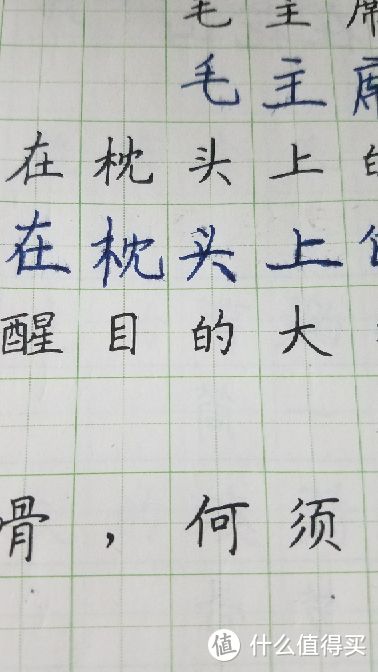 毛主席
毛主席
在枕头上的
在枕头上
醒目的大
骨，何须
值 什么值得买